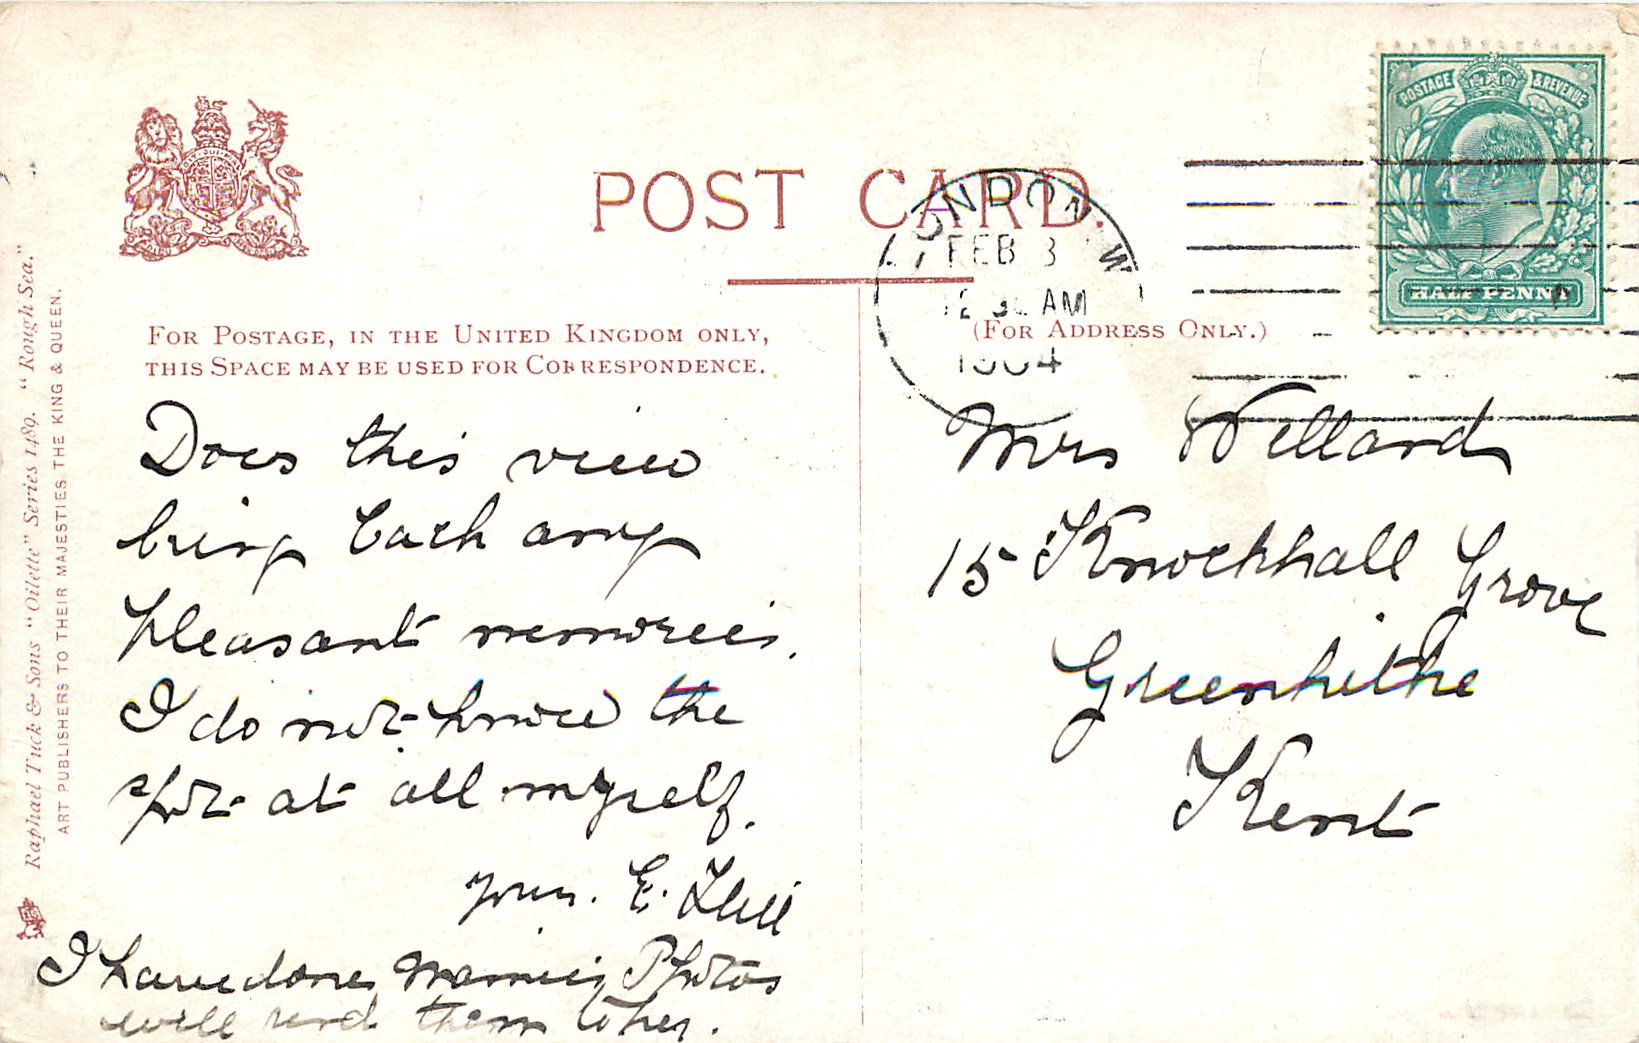 POST CARD.
FOR POSTAGE, IN THE UNITED KINGDOM ONLY,
THIS SPACE MAY BE USED FOR CORRESPONDENCE.
(FOR ADDRESS ONLY.)
POSTAGE & REVENUE
HALF PENNY
LONDON W
FEB 3
AM
1904
Does this view
bring back any
pleasant memories.
I do not know the
spot at all myself.
yours. E. Hill
I have done Mamies Photos
will send them to her.
Mrs Wellard
15 Knockhall Grove
Greenhithe
Kent
Raphael Tuck & Sons "Oilette" Series 1489. "Rough Sea."
ART PUBLISHERS TO THEIR MAJESTIES THE KING & QUEEN.